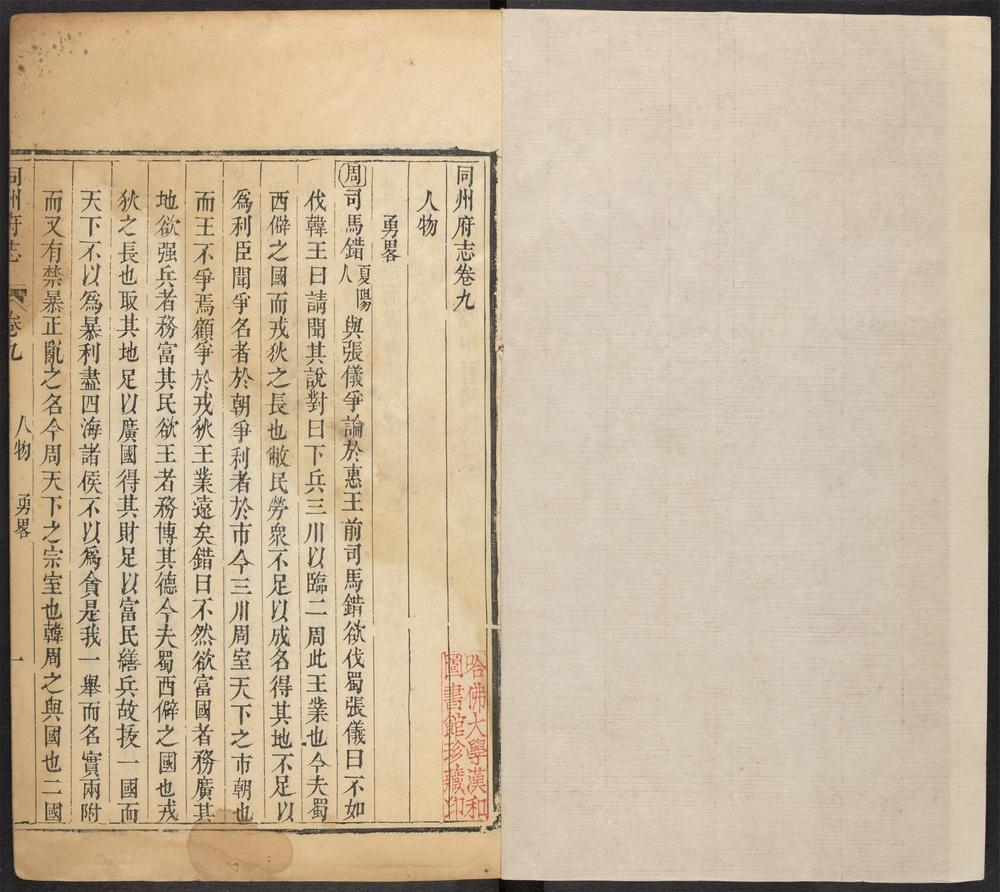 同州府志卷九
人物
勇畧
周司馬錯夏陽人與張儀爭論於惠王前司馬錯欲伐蜀張儀曰不如
伐韓王曰請聞其說對曰下兵三川以臨二周此王業也今夫蜀
西僻之國而戎狄之長也敝民勞衆不足以成名得其地不足以
爲利臣聞爭名者於朝爭利者於市今三川周室天下之市朝也
而王不爭焉顧爭於戎狄王業遠矣錯曰不然欲富國者務廣其
地欲强兵者務富其民欲王者務博其德今夫蜀西僻之國也戎
狄之長也取其地足以廣國得其財足以富民繕兵故拔一國而
天下不以爲暴利盡四海諸侯不以爲貪是我一舉而名實兩附
而又有禁暴正亂之名今周天下之宗室也韓周之與國也二國
同州府志 卷九 人物 勇畧 一
哈佛大學漢和
圖書館珍藏印